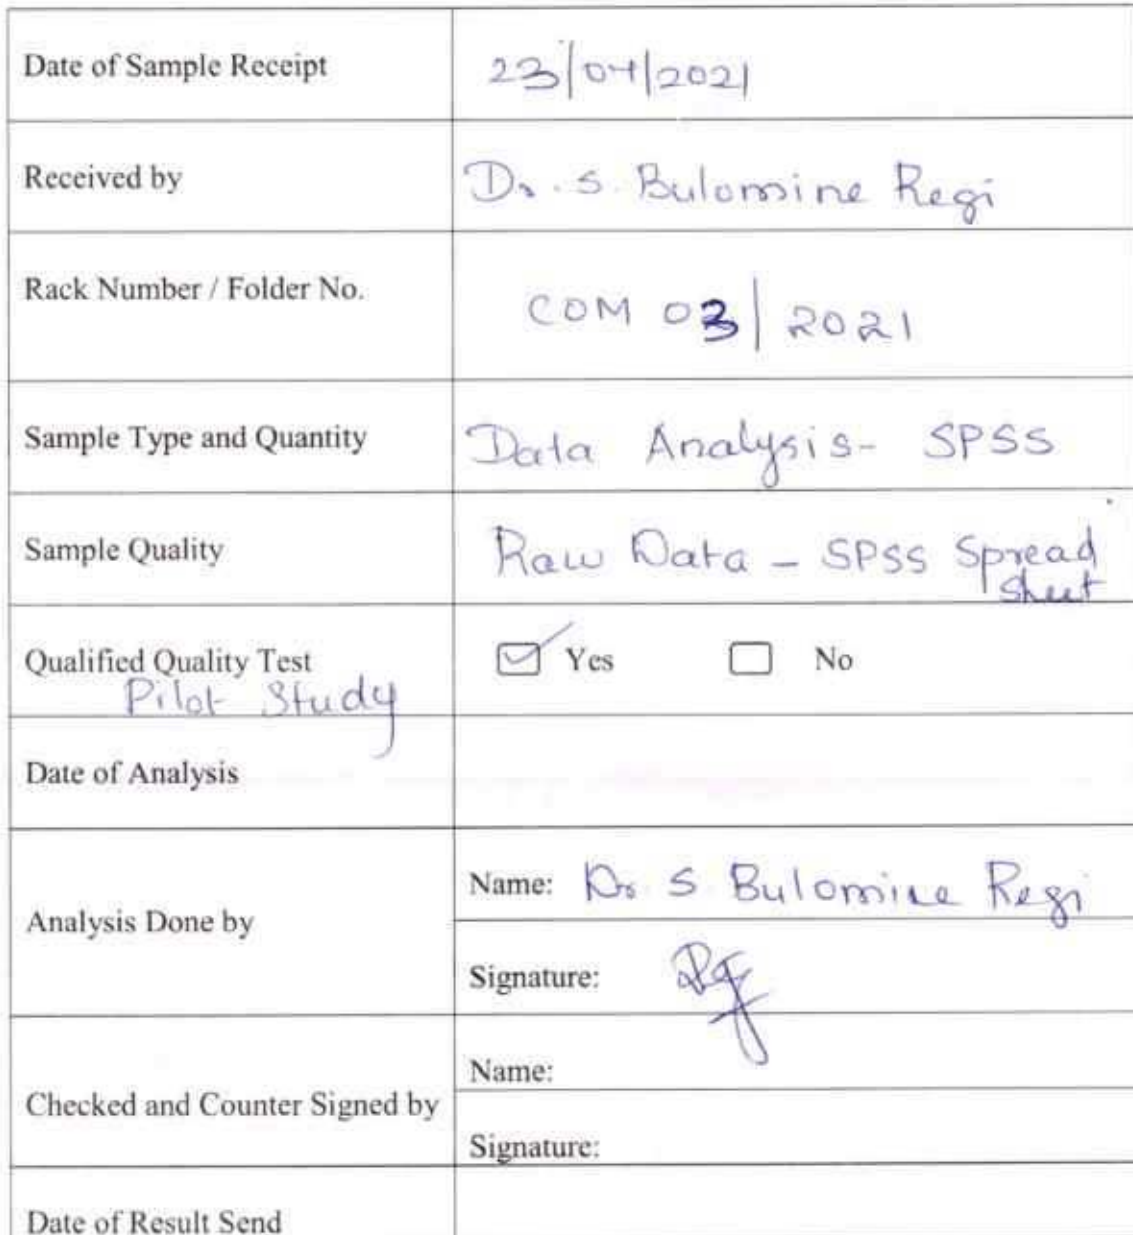 Date of Sample Receipt 23/04/2021
Received by Dr. S. Bulomine Regi
Rack Number / Folder No. COM 03/2021
Sample Type and Quantity Data Analysis - SPSS
Sample Quality Raw Data - SPSS Spread
Sheet
Qualified Quality Test Yes No
Pilot Study
Date of Analysis
Name: Dr. S. Bulomine Regi
Analysis Done by
Signature:
Name:
Checked and Counter Signed by
Signature:
Date of Result Send